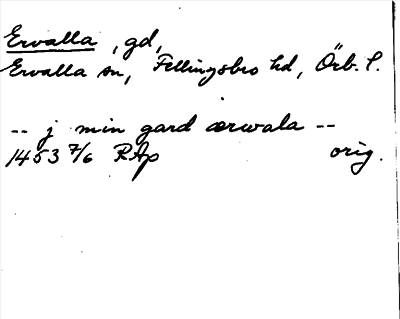 Ervalla, gd,
Ervalla sn, Fellingsbro hd, Örb. l.
-- j min gard ærwala --
1453 7/6 RAp orig.